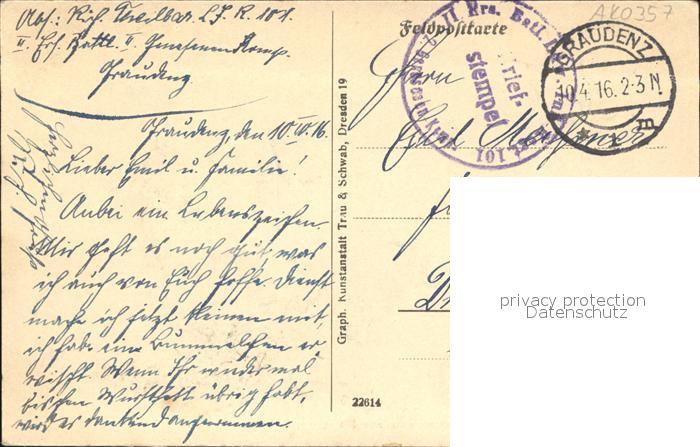 Abs: Rich.
L.J.R. 101.
II. Ers. Battl. II. Genesenen Komp.
Graudenz.
Graudenz, den 10.IV.16.
Lieber Emil u. Familie!
Anbei ein Lebenszeichen.
Mir geht es noch gut, was
ich auch von Euch hoffe. Dienst
mache ich jetzt keinen mit,
ich habe eine Bummelchen er-
wischt. Wenn Ihr wieder mal
bischen Wurstfett übrig habt,
wird es dankend angenommen.
Feldpostkarte
II. Ers. Batl.
Brief-
stempel
101
GRAUDENZ
10.4.16.2-3N
* 1 m
AK0357
Herrn
Emil
Graph. Kunstanstalt Trau & Schwab, Dresden 19
22614
privacy protection
Datenschutz